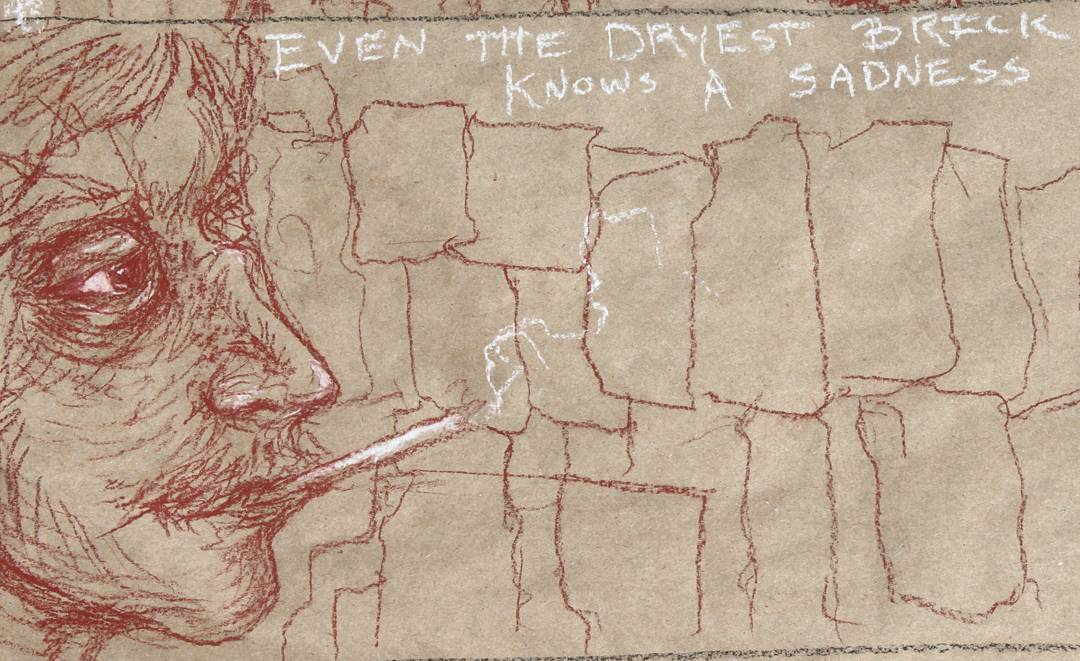 EVEN THE DRYEST BRICK
KNOWS A SADNESS